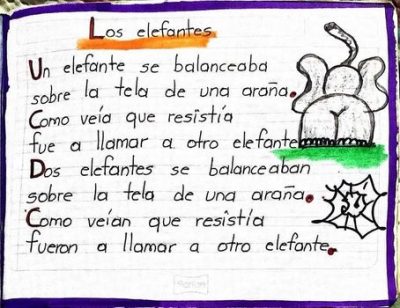 Los elefantes
Un elefante se balanceaba
sobre la tela de una araña.
Como veía que resistía
fue a llamar a otro elefante
Dos elefantes se balanceaban
sobre la tela de una araña.
Como veían que resistía
fueron a llamar a otro elefante.